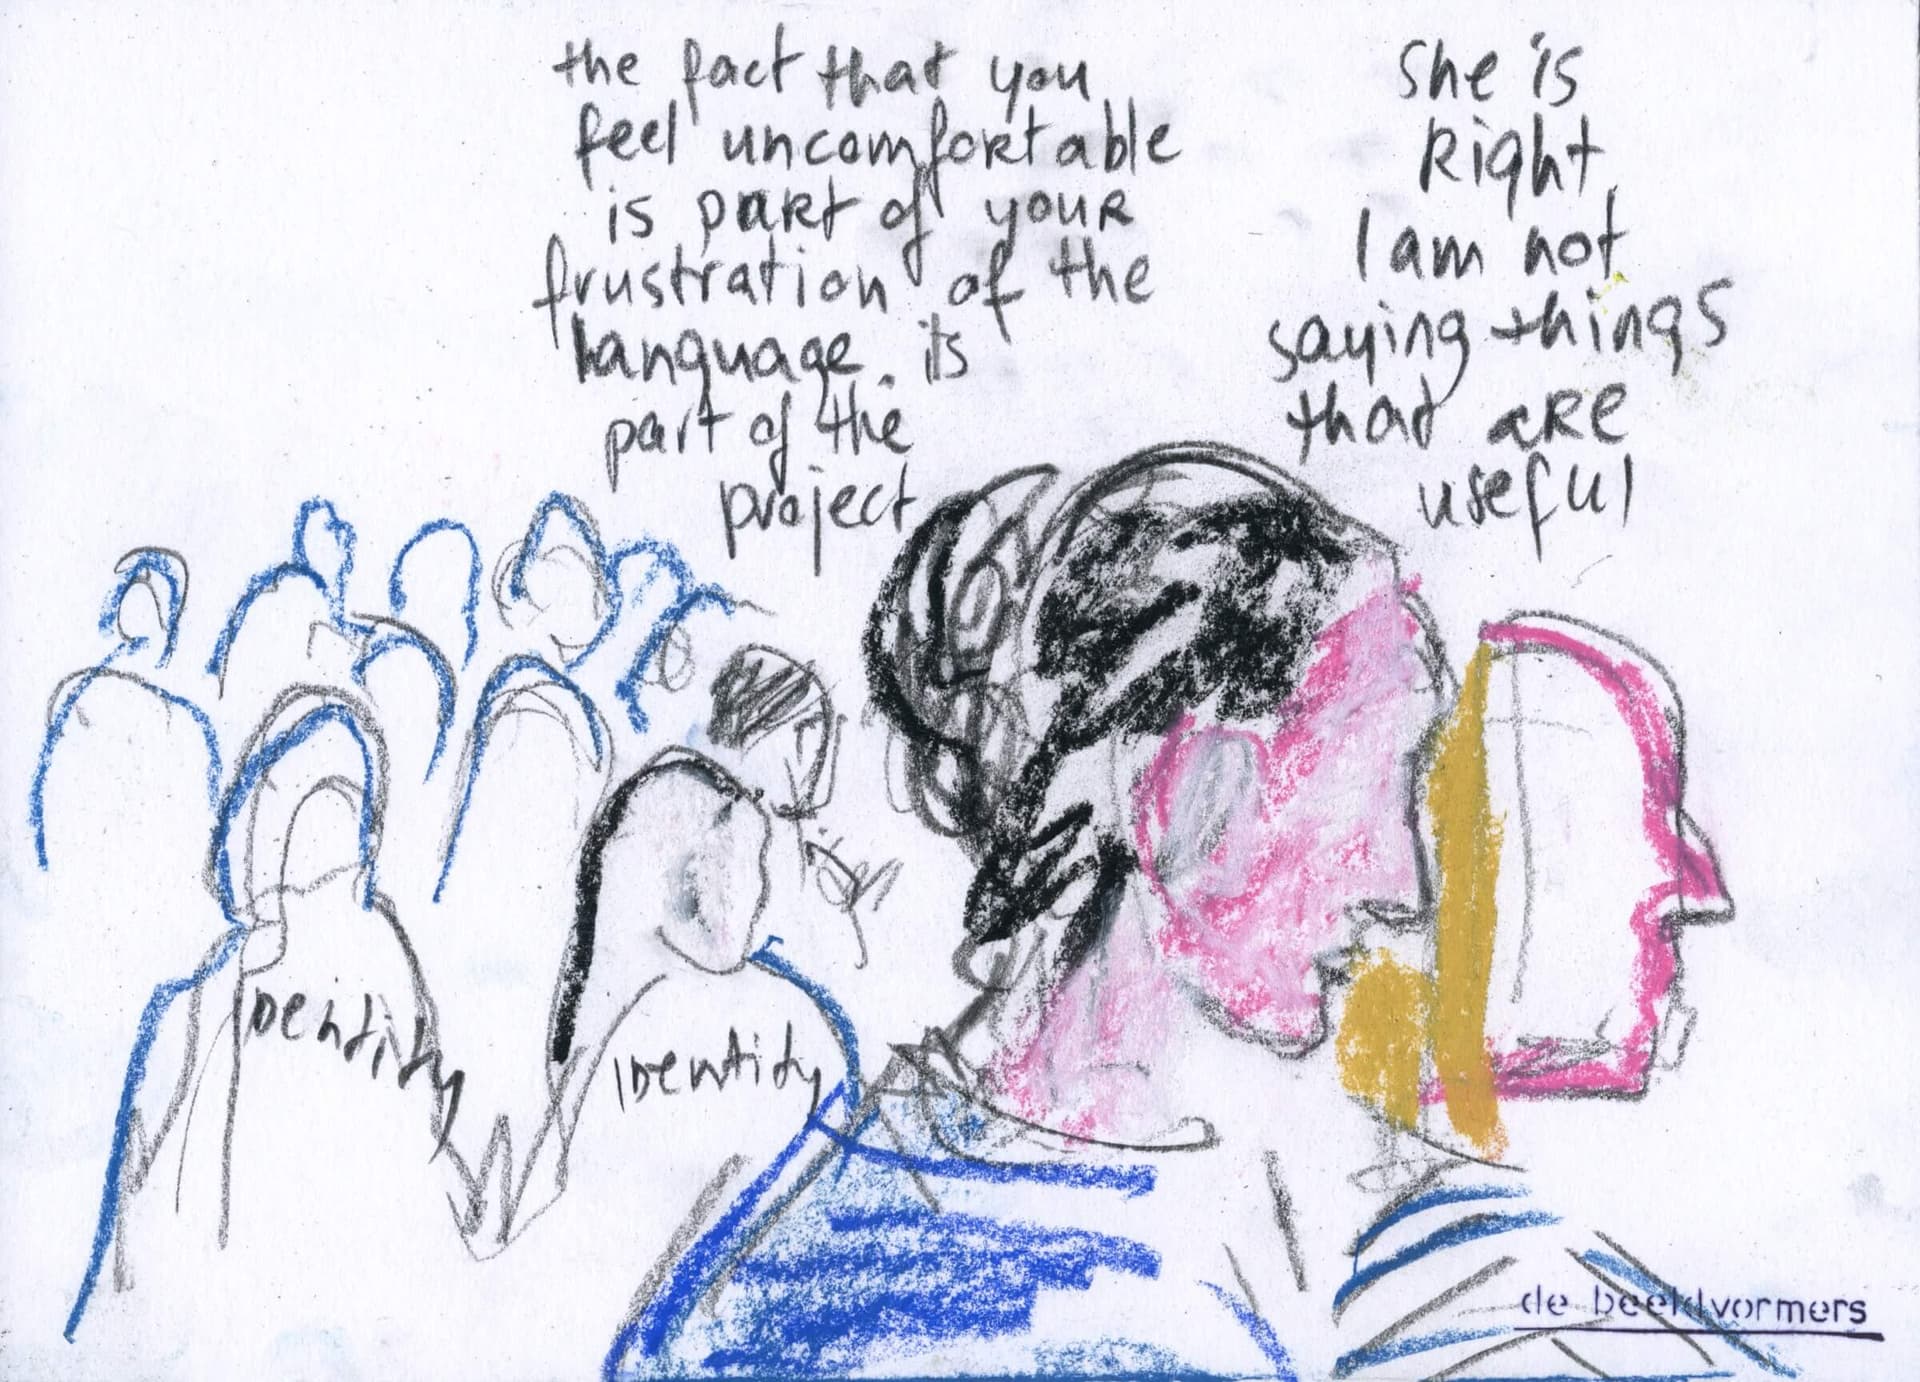 the fact that you
feel uncomfortable
is part of your
frustration of the
language. its
part of the
project
She is
Right,
I am not
saying things
that are
useful
IDentity
IDentity
de beeldvormers